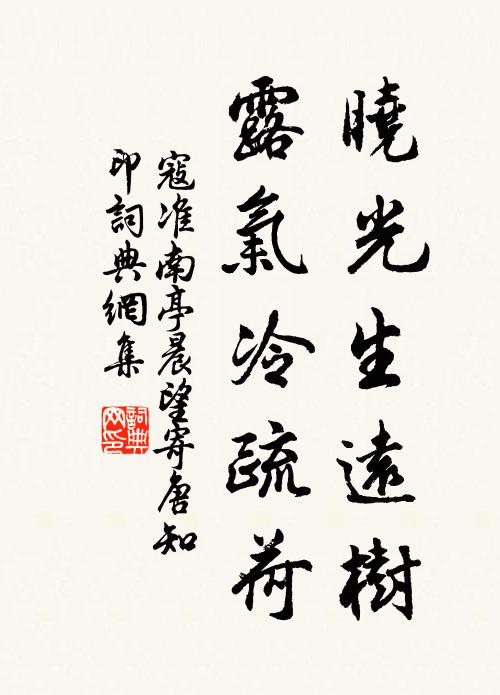 曉光生遠樹
露氣冷疏荷
寇准南亭晨望寄唐知
印詞典網集
詞典网印